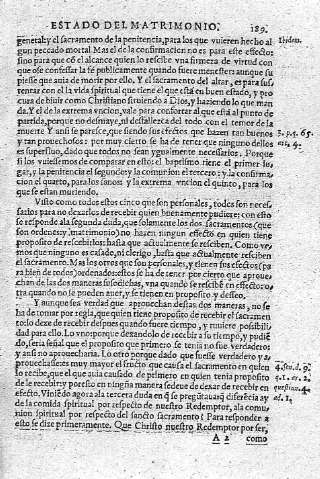 ESTADO DEL MATRIMONIO. 189.
general: y el sacramento de la penitencia, para los que vuieren hecho al
gun peccado mortal. Mas el de la confirmacion no es para este effecto:
sino para que cõ el alcance quien lo rescibe vna firmeza de virtud con
que ose confessar la fé publicamente quando fuere menester aunque su
piesse que auia de morir por ello. Y el sacramento del altar, es para sus/
tentar con el la vida spiritual que tiene el que está en buen estado, y pro
cura de biuir como Christiano siruiendo a Dios, y haziendo lo que man
da. Y el de la extrema vncion, vale para confortar al que está al punto de
partida, porque no desmaye, ni desfallesca del todo con el temor de la
muerte Y ansi se paresce, que siendo sus effectos que hazen tan buenos
y tan prouechosos: por muy cierto se ha de tener que ninguno dellos
es superfluo, dado que todos no sean ygualmente necessarios. Porque
si los vuiessemos de comparar en esto: el baptismo tiene el primer lu-
gar, y la penitencia el segundo y la comunion el tercero: y la confirma-
cion el quarto, para los sanos: y la extrema vncion el quinto, para los
que se estan muriendo.
Visto como todos estos cinco que son personales, todos son neces-
sarios para no dexarlos de recebir quien buenamente pudiere: con esto
se responde a la segunda duda, que solamente los dos sacramentos (que
son ordenes: y matrimonio) no hazen ningun effecto en quien tiene
proposito de rescebirlos: hasta que actualmente se resciben. Como ve-
mos que ninguno es casado, ni clerigo, hasta que actualmente resciben
el sacramento. Mas los otros que son personales, y tienen sus effectos (pa
ra bien de todos) ordenados: estos se ha de tener por cierto que aproue-
chan de las dos maneras susodichas, vna quando se rescibẽ en effecto: o
tra quando no se pueden auer, y se tienen en proposito y desseo.
Y aunque sea verdad que aprouechan dessas dos maneras, no se
ha de tomar por regla, que quien tiene proposito de recebir el sacramen
to lo dexe de recebir despues quando fuere tiempo, y tuuiere possibili-
dad para ello. Lo vno porque dexandolo de recebir a su tiempo, y pudiẽ
do, seria señal que el proposito que primero se tenia no fue verdadero
y ansi no aprouecharia. Lo otro porque dado que fuesse verdadero y a-
prouechasse es muy mayor el fructo que causa el sacramento en quien
lo recibe, que el que auia causado de primero en quien tenia proposito
de le recebir: y por esto en ningũa manera se deue de dexar de recebir en
effecto. Viniẽdo agora ala tercera duda en q̃ se pregũtaua q̃ diferẽcia ay
de la comida spiritual por respecto de nuestro Redemptor, ala comu-
nion spiritual por respecto del sancto sacramento? Para responder a
esto se dize primeramente. Que Christo nuestro Redemptor por ser,
A a 2 como
Ibidem.
3. p. q. 65.
ar. 4.
4. sen. d. 9.
q. 1. ar. 2.
quæstiun. 4.
ad. 1.